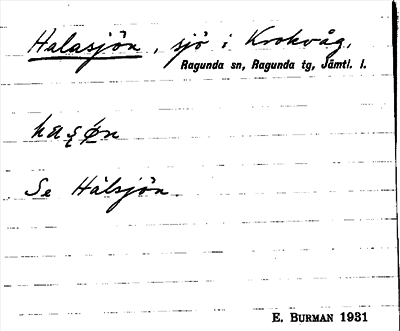 Halasjön, sjö i Krokvåg,
Ragunda sn, Ragunda tg, Jämtl. l.
Se Hålsjön.
E. BURMAN 1931